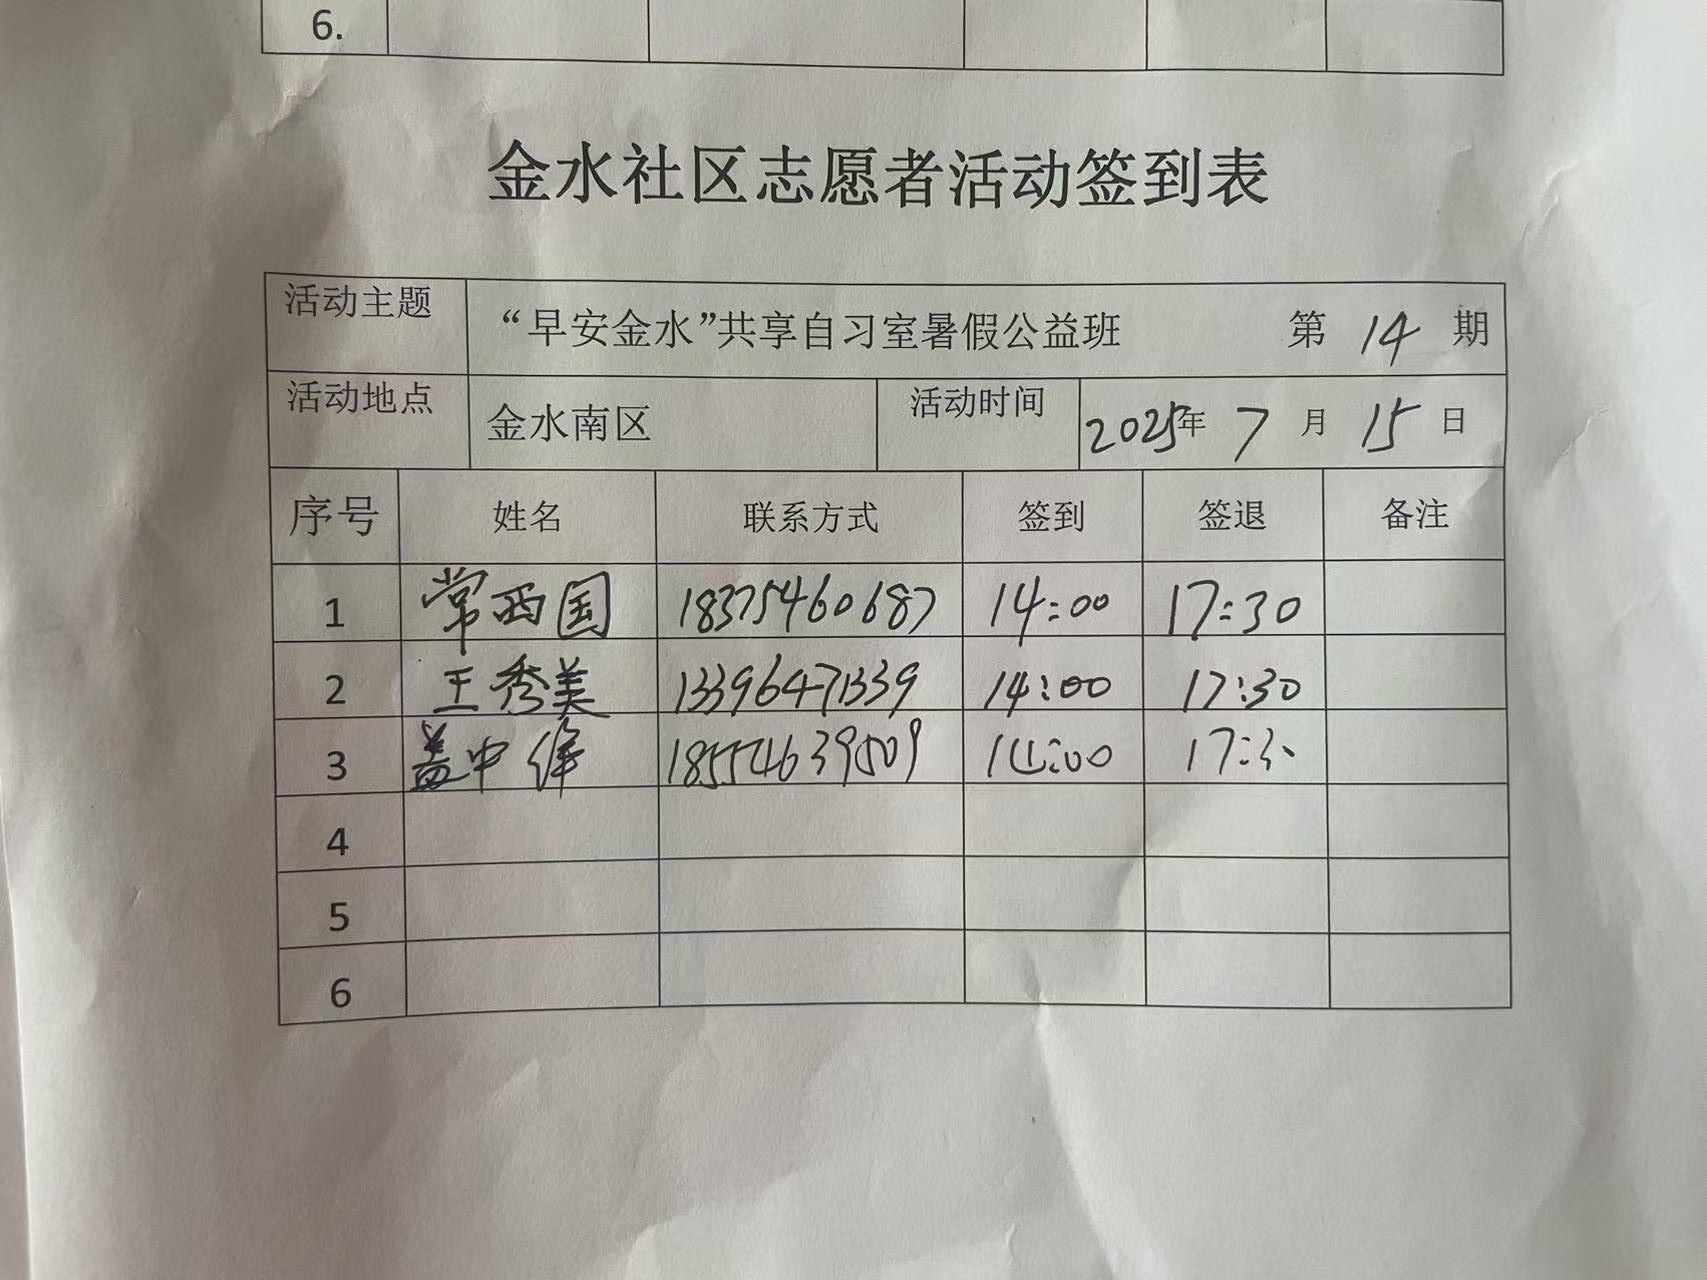 6.
金水社区志愿者活动签到表
活动主题 “早安金水”共享自习室暑假公益班 第 14 期
活动地点 金水南区 活动时间 2025年 7 月 15 日
序号 姓名 联系方式 签到 签退 备注
1 常西国 18375460687 14:00 17:30
2 王秀美 13396471339 14:00 17:30
3 盖中 18554639509 14:00
4
5
6